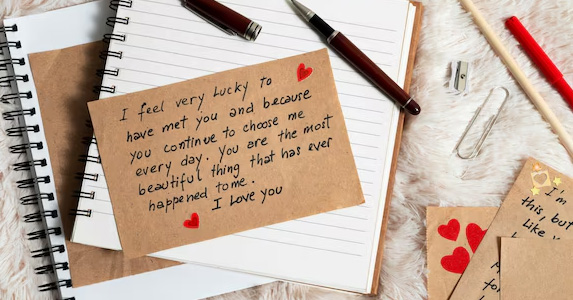 I feel very Lucky to
have met you and because
you continue to choose me
every day. You are the most
beautiful thing that has ever
happened to me.
I Love you
I'm
this, but
Like